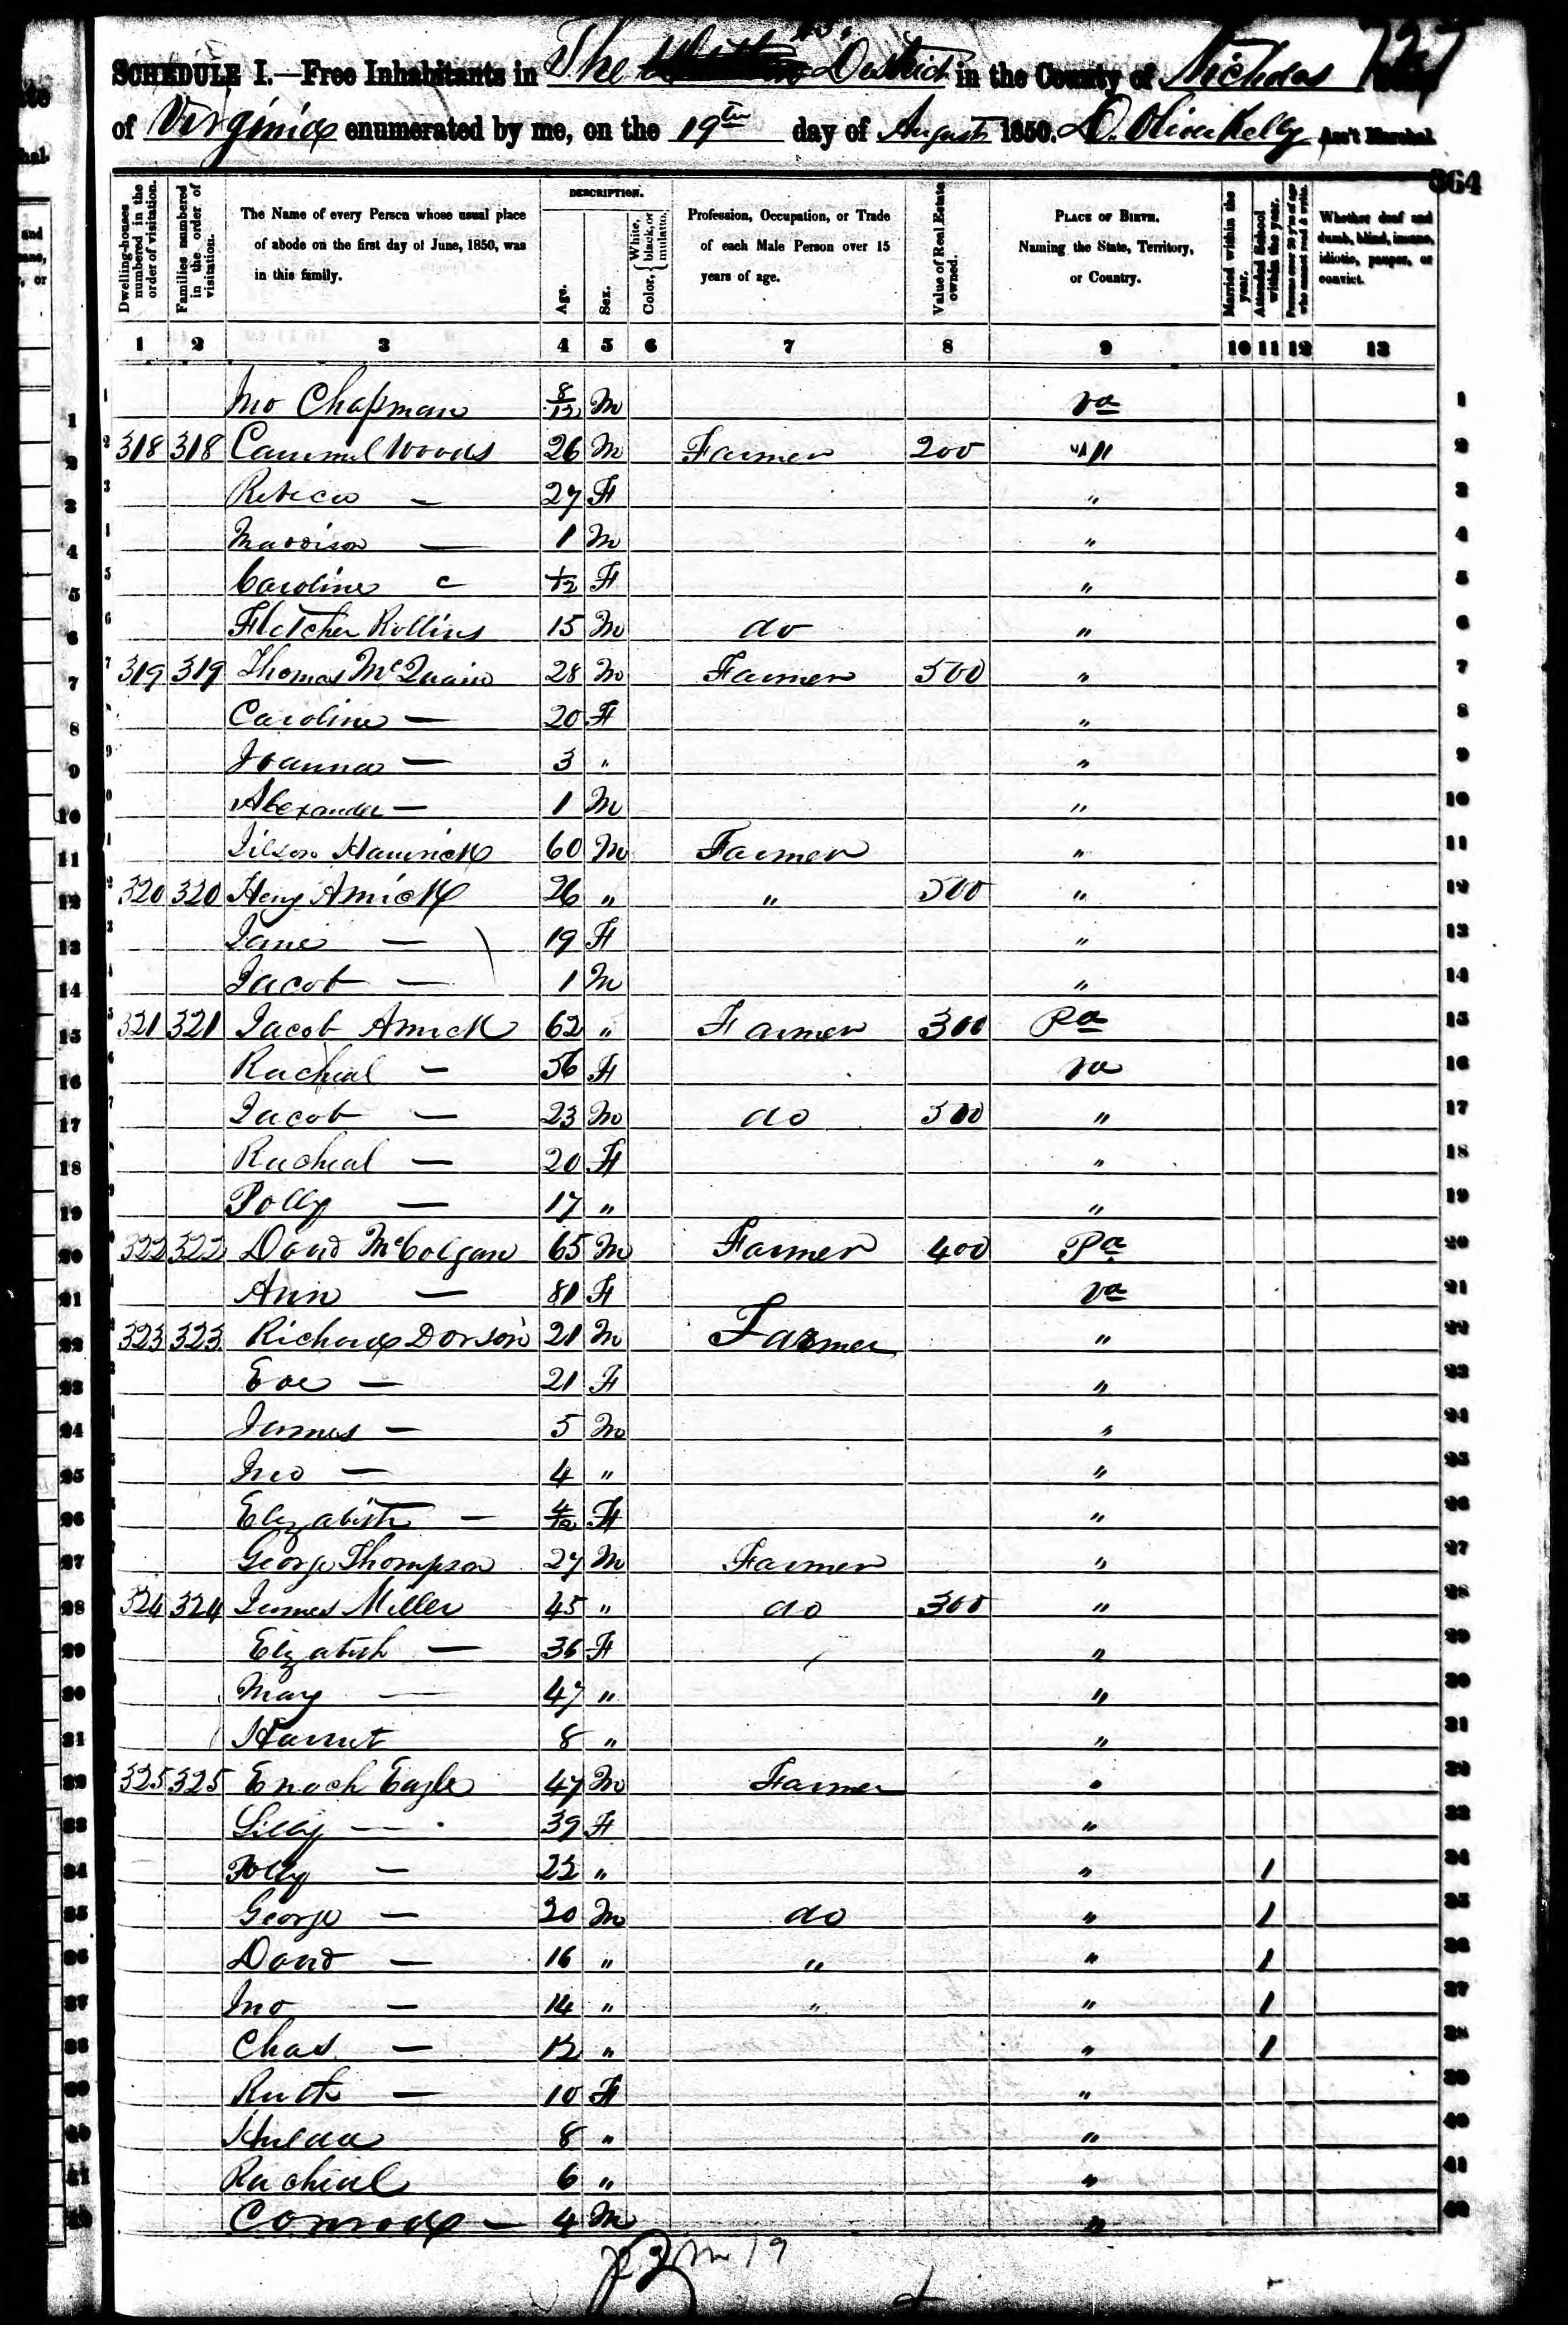 727
SCHEDULE I.—Free Inhabitants in The District in the County of Nicholas
of Virginia enumerated by me, on the 19th day of August 1850. D. Oliver Kelly Ass't Marshal.
364
Dwelling-houses numbered in the order of visitation.
Families numbered in the order of visitation.
The Name of every Person whose usual place of abode on the first day of June, 1850, was in this family.
DESCRIPTION.
Age.
Sex.
Color, { White, black, or mulatto.
Profession, Occupation, or Trade of each Male Person over 15 years of age.
Value of Real Estate owned.
PLACE OF BIRTH. Naming the State, Territory, or Country.
Married within the year.
Attended School within the year.
Persons over 20 y'rs of age who cannot read & write.
Whether deaf and dumb, blind, insane, idiotic, pauper, or convict.
1 2 3 4 5 6 7 8 9 10 11 12 13
1 Jno Chapman 8/12 M Va 1
2 318 318 Woods 26 M Farmer 200 " 2
3 Rebeca — 27 F " 3
4 Maddison — 1 M " 4
5 Caroline 1/12 F " 5
6 Fletcher Rollins 15 M do " 6
7 319 319 Thomas McQuain 28 M Farmer 500 " 7
8 Caroline — 20 F " 8
9 Joanna — 3 " " 9
10 Alexander — 1 M " 10
11 Hamrick 60 M Farmer " 11
12 320 320 Heny Amick 26 " " 500 " 12
13 Jane — 19 F " 13
14 Jacob — 1 M " 14
15 321 321 Jacob Amick 62 " Farmer 300 Pa 15
16 Racheal — 56 F Va 16
17 Jacob — 23 M do 500 " 17
18 Racheal — 20 F " 18
19 Polly — 17 " " 19
20 322 322 David McColgan 65 M Farmer 400 Pa 20
21 Ann — 81 F Va 21
22 323 323 Richard Dorson 21 M Farmer " 22
23 Eve — 21 F " 23
24 James — 5 M " 24
25 Jno — 4 " " 25
26 Elizabeth — 4/12 F " 26
27 George Thompson 27 M Farmer " 27
28 324 324 James Miller 45 " do 300 " 28
29 Elizabeth — 36 F " 29
30 Mary — 47 " " 30
31 Harriet 8 " " 31
32 325 325 Enoch Eagle 47 M Farmer " 32
33 — 39 F " 33
34 Polly — 22 " " 1 34
35 George — 20 M do " 1 35
36 David — 16 " " " 1 36
37 Jno — 14 " " " 1 37
38 Chas — 12 " " 1 38
39 Ruth — 10 F " 39
40 Huldaa 8 " " 40
41 Racheal 6 " " 41
42 Conrad — 4 M " 42
19